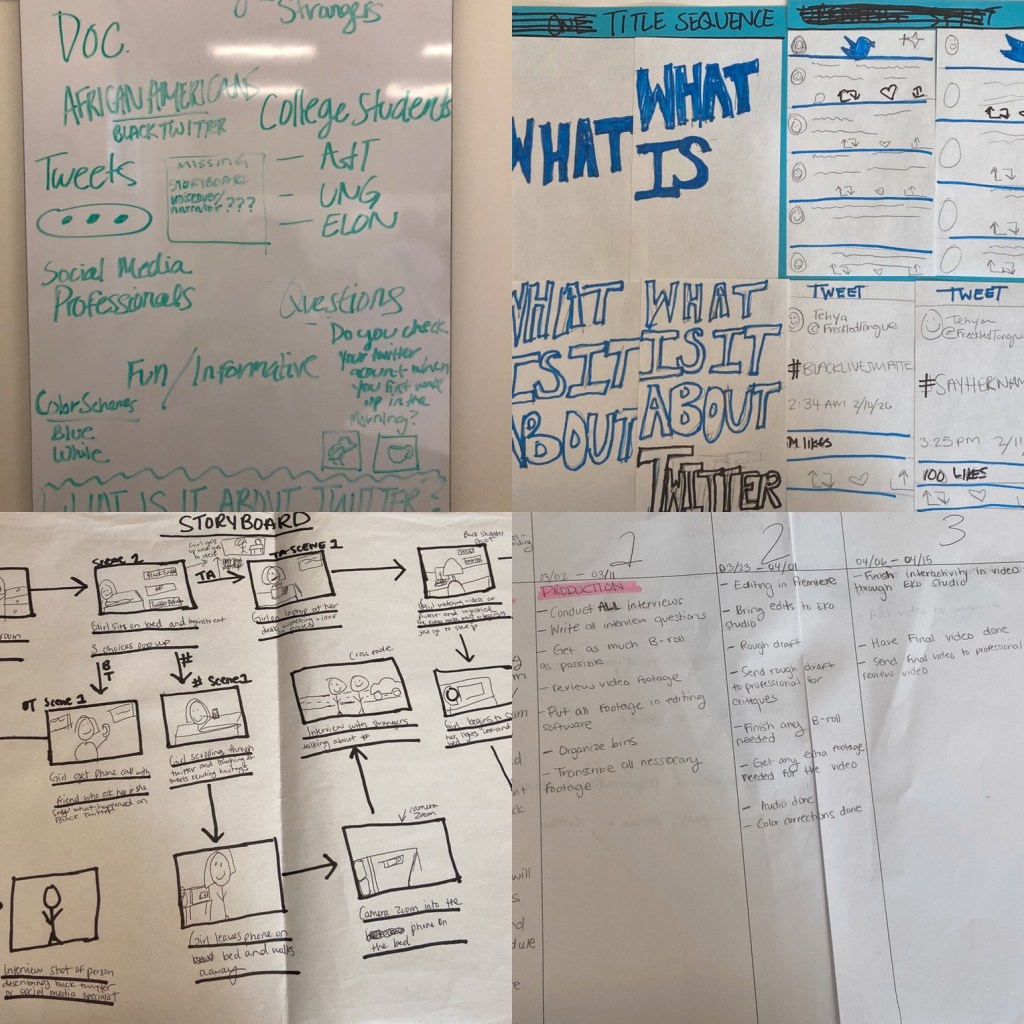 Strangers
DOC.
AFRICAN AMERICANS
BLACK TWITTER
College Students
Tweets
MISSING
STORYBOARD
voiceover/
narrator???
— A&T
— UNG
— ELON
Social Media
Professionals
Questions
Do you check
your twitter
account when
you first wake
up in the
morning?
Fun/Informative
Color Schemes
Blue
White
WHAT IS IT ABOUT TWITTER
ONE TITLE SEQUENCE
WHAT
WHAT
IS
WHAT
IS IT
ABOUT
WHAT
IS IT
ABOUT
TWITTER
TWEET
Tehya
@FreckledTongue
#BLACKLIVESMATTE
2:34 AM 2/10/20
M likes
TWEET
Tehya
@FreckledTongu
#SAYHERNAM
3:25 pm 2/11
100 LIKES
STORYBOARD
SCENE 2
Girl sits on bed and
3 choices pop up
TA
TA SCENE 1
Girl on laptop at her
desk watching
Back shoulder
shot
room
B
T
#
BT Scene 1
Girl get phone call with
friend who ask her if she
saw what happened on
Black Twitter
# Scene 1
Girl scrolling through
twitter and
tweets reading hashtags
Cross fade
Interview with strangers
talking about #
Girl begins to
camera
zoom
Interview shot of person
describing black twitter
or social media specialist
Girl leaves phone on
bed and walks
away
Camera Zoom into the
phone on
the bed
1
03/02 - 03/11
PRODUCTION
- Conduct ALL interviews
- Write all interview questions
- Get as much B-roll
as possible
- review video footage
- Put all footage in editing
software
- Organize bins
- Transcribe all nessicary
footage
2
03/23 - 04/01
- Editing in Premiere
- Bring edits to Eko
studio
- Rough draft
- Send rough draft
to professional for
critiques
- Finish any B-roll
needed
- Get any extra footage
needed for the video
- Audio done
- Color corrections done
3
04/06 - 04/15
- Finish interactivity in video
through Eko studio
- Have Final video done
- Send final video to professional
review video
will